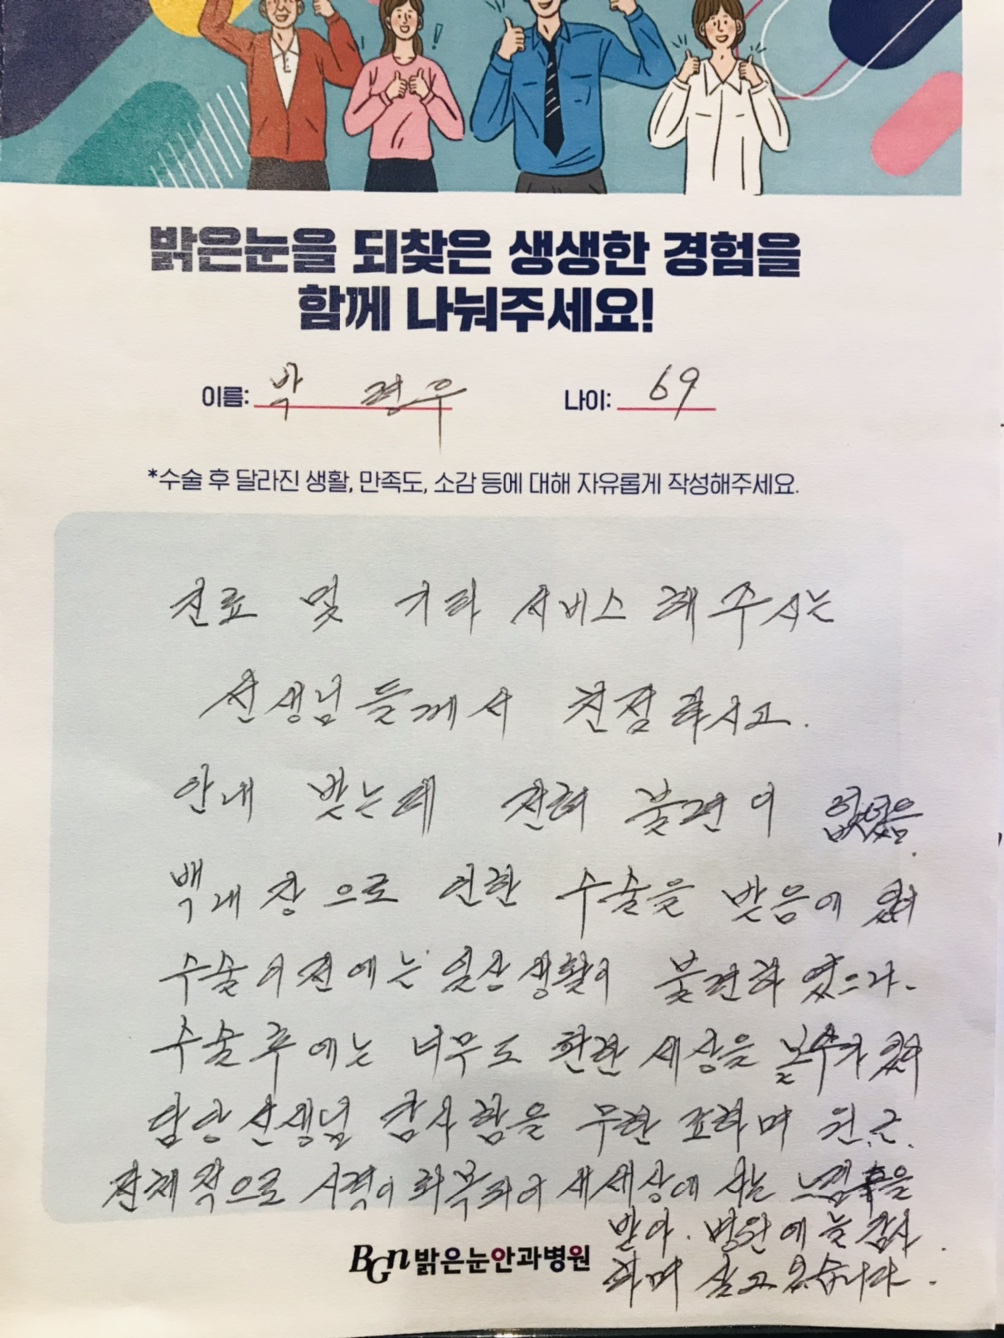 밝은눈을 되찾은 생생한 경험을
함께 나눠주세요!
이름: 박 경우 나이: 69
*수술 후 달라진 생활, 만족도, 소감 등에 대해 자유롭게 작성해주세요.
진료 및 기타 서비스 해 주시는
선생님들께서 친절하시고.
안내 받는데 전혀 불편이 없었음.
백내장으로 인한 수술을 받음에
수술 이전에는 일상생활이 불편하였으나.
수술 후에는 너무도 환한 세상을 볼수가
담당선생님 감사함을 무한 표하며 원.근.
전체적으로 시력이 회복되어 새세상에 사는 느낌을
받아. 병원에 늘 감사.
하며 살고 있습니다.
BGN 밝은눈안과병원